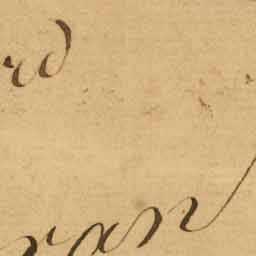 rd
ran